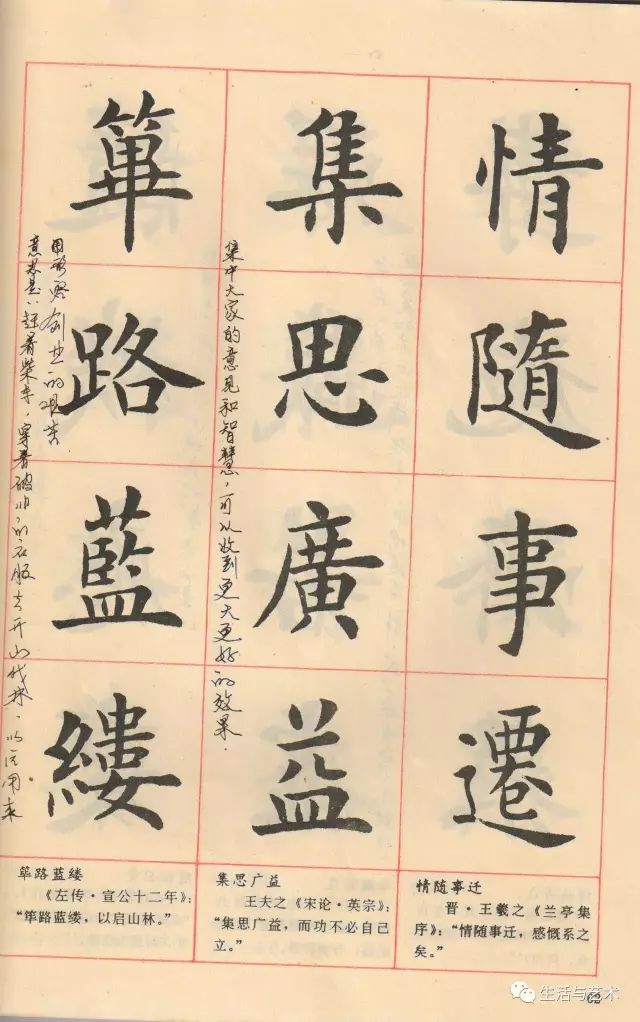 情隨事遷
集思廣益
集中大家的意见和智慧，可以收到更大更好的效果．
篳路藍縷
意思是：赶着柴车，穿着破旧的衣服去开山伐林．以后用来
形容创业的艰苦
筚路蓝缕
《左传·宣公十二年》：
“筚路蓝缕，以启山林。”
集思广益
王夫之《宋论·英宗》：
“集思广益，而功不必自己
立。”
情随事迁
晋·王羲之《兰亭集
序》：“情随事迁，感慨系之
矣。”
62
生活与艺术